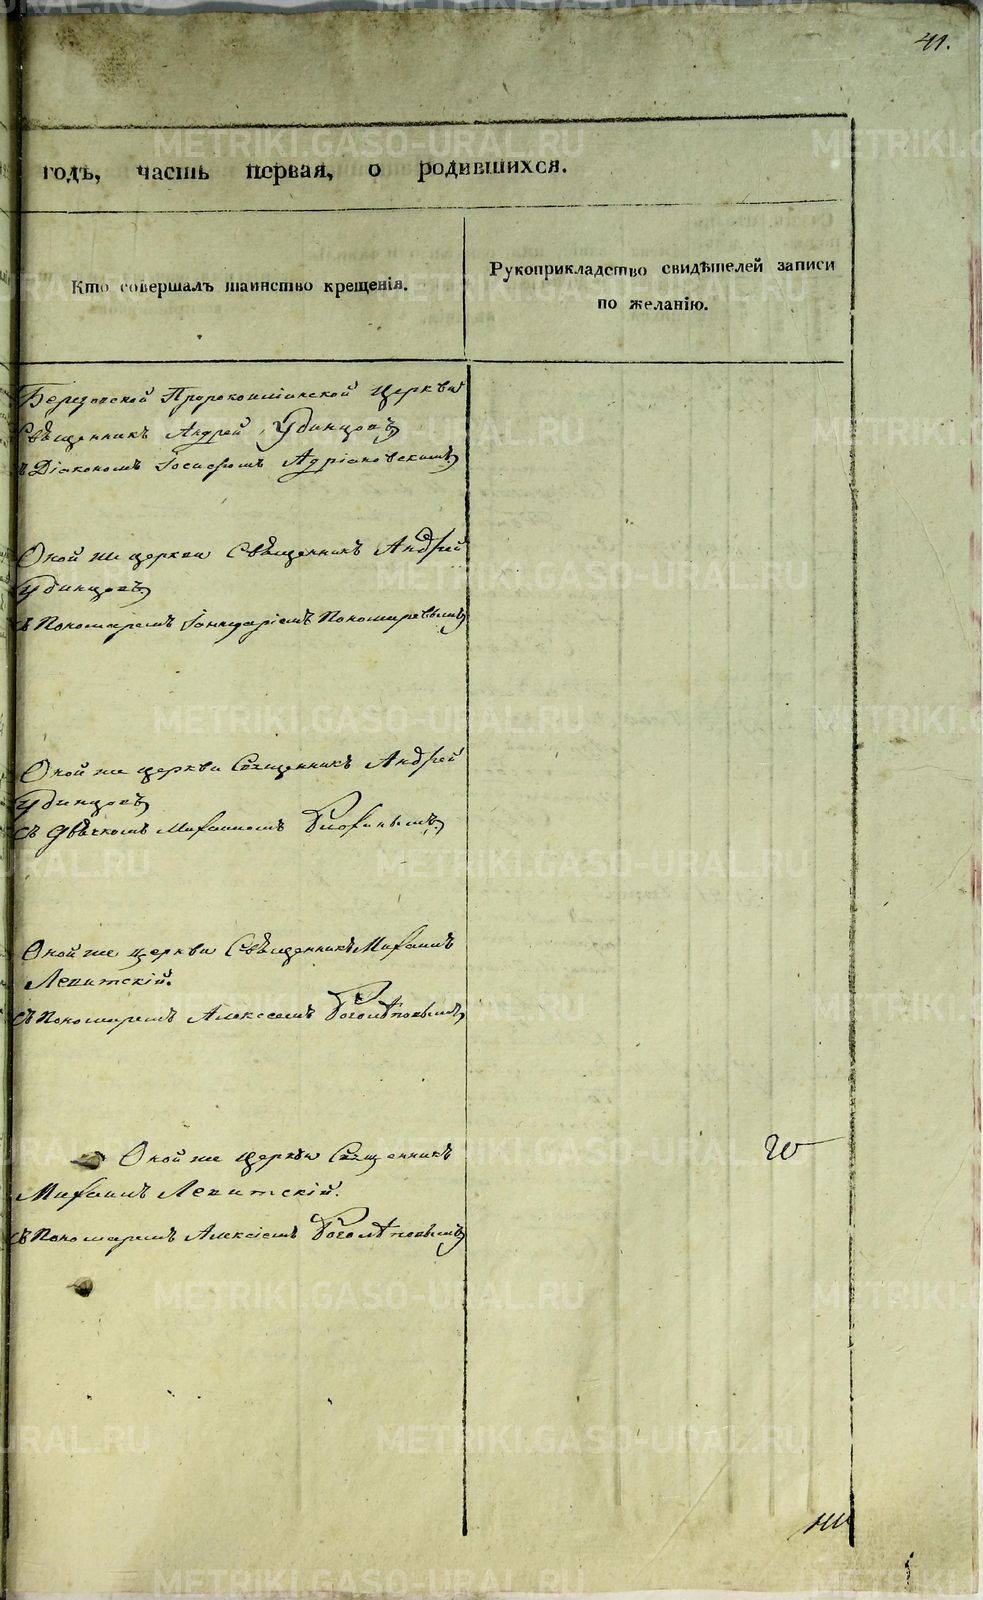 41.
годъ, часть первая, о родившихся.
Кто совершалъ таинство крещенія.
Рукоприкладство свидѣтелей записи
по желанію.
Березовской Пророкоильинской Церкви
Священникъ Андрей Удинцовъ
съ Діакономъ Іосифомъ Адріановскимъ
Оной же церкви Священникъ Андрей
Удинцовъ
съ Пономаремъ Пономаревымъ
Оной же церкви Священникъ Андрей
Удинцовъ
съ Дьячкомъ Михаиломъ
Оной же церкви Священникъ Михаилъ
Левитскій.
съ Пономаремъ Алексеемъ Боголѣповымъ
Оной же церкви Священникъ
Михаилъ Левитскій.
съ Пономаремъ Алексіемъ Боголѣповымъ
METRIKI.GASO-URAL.RU